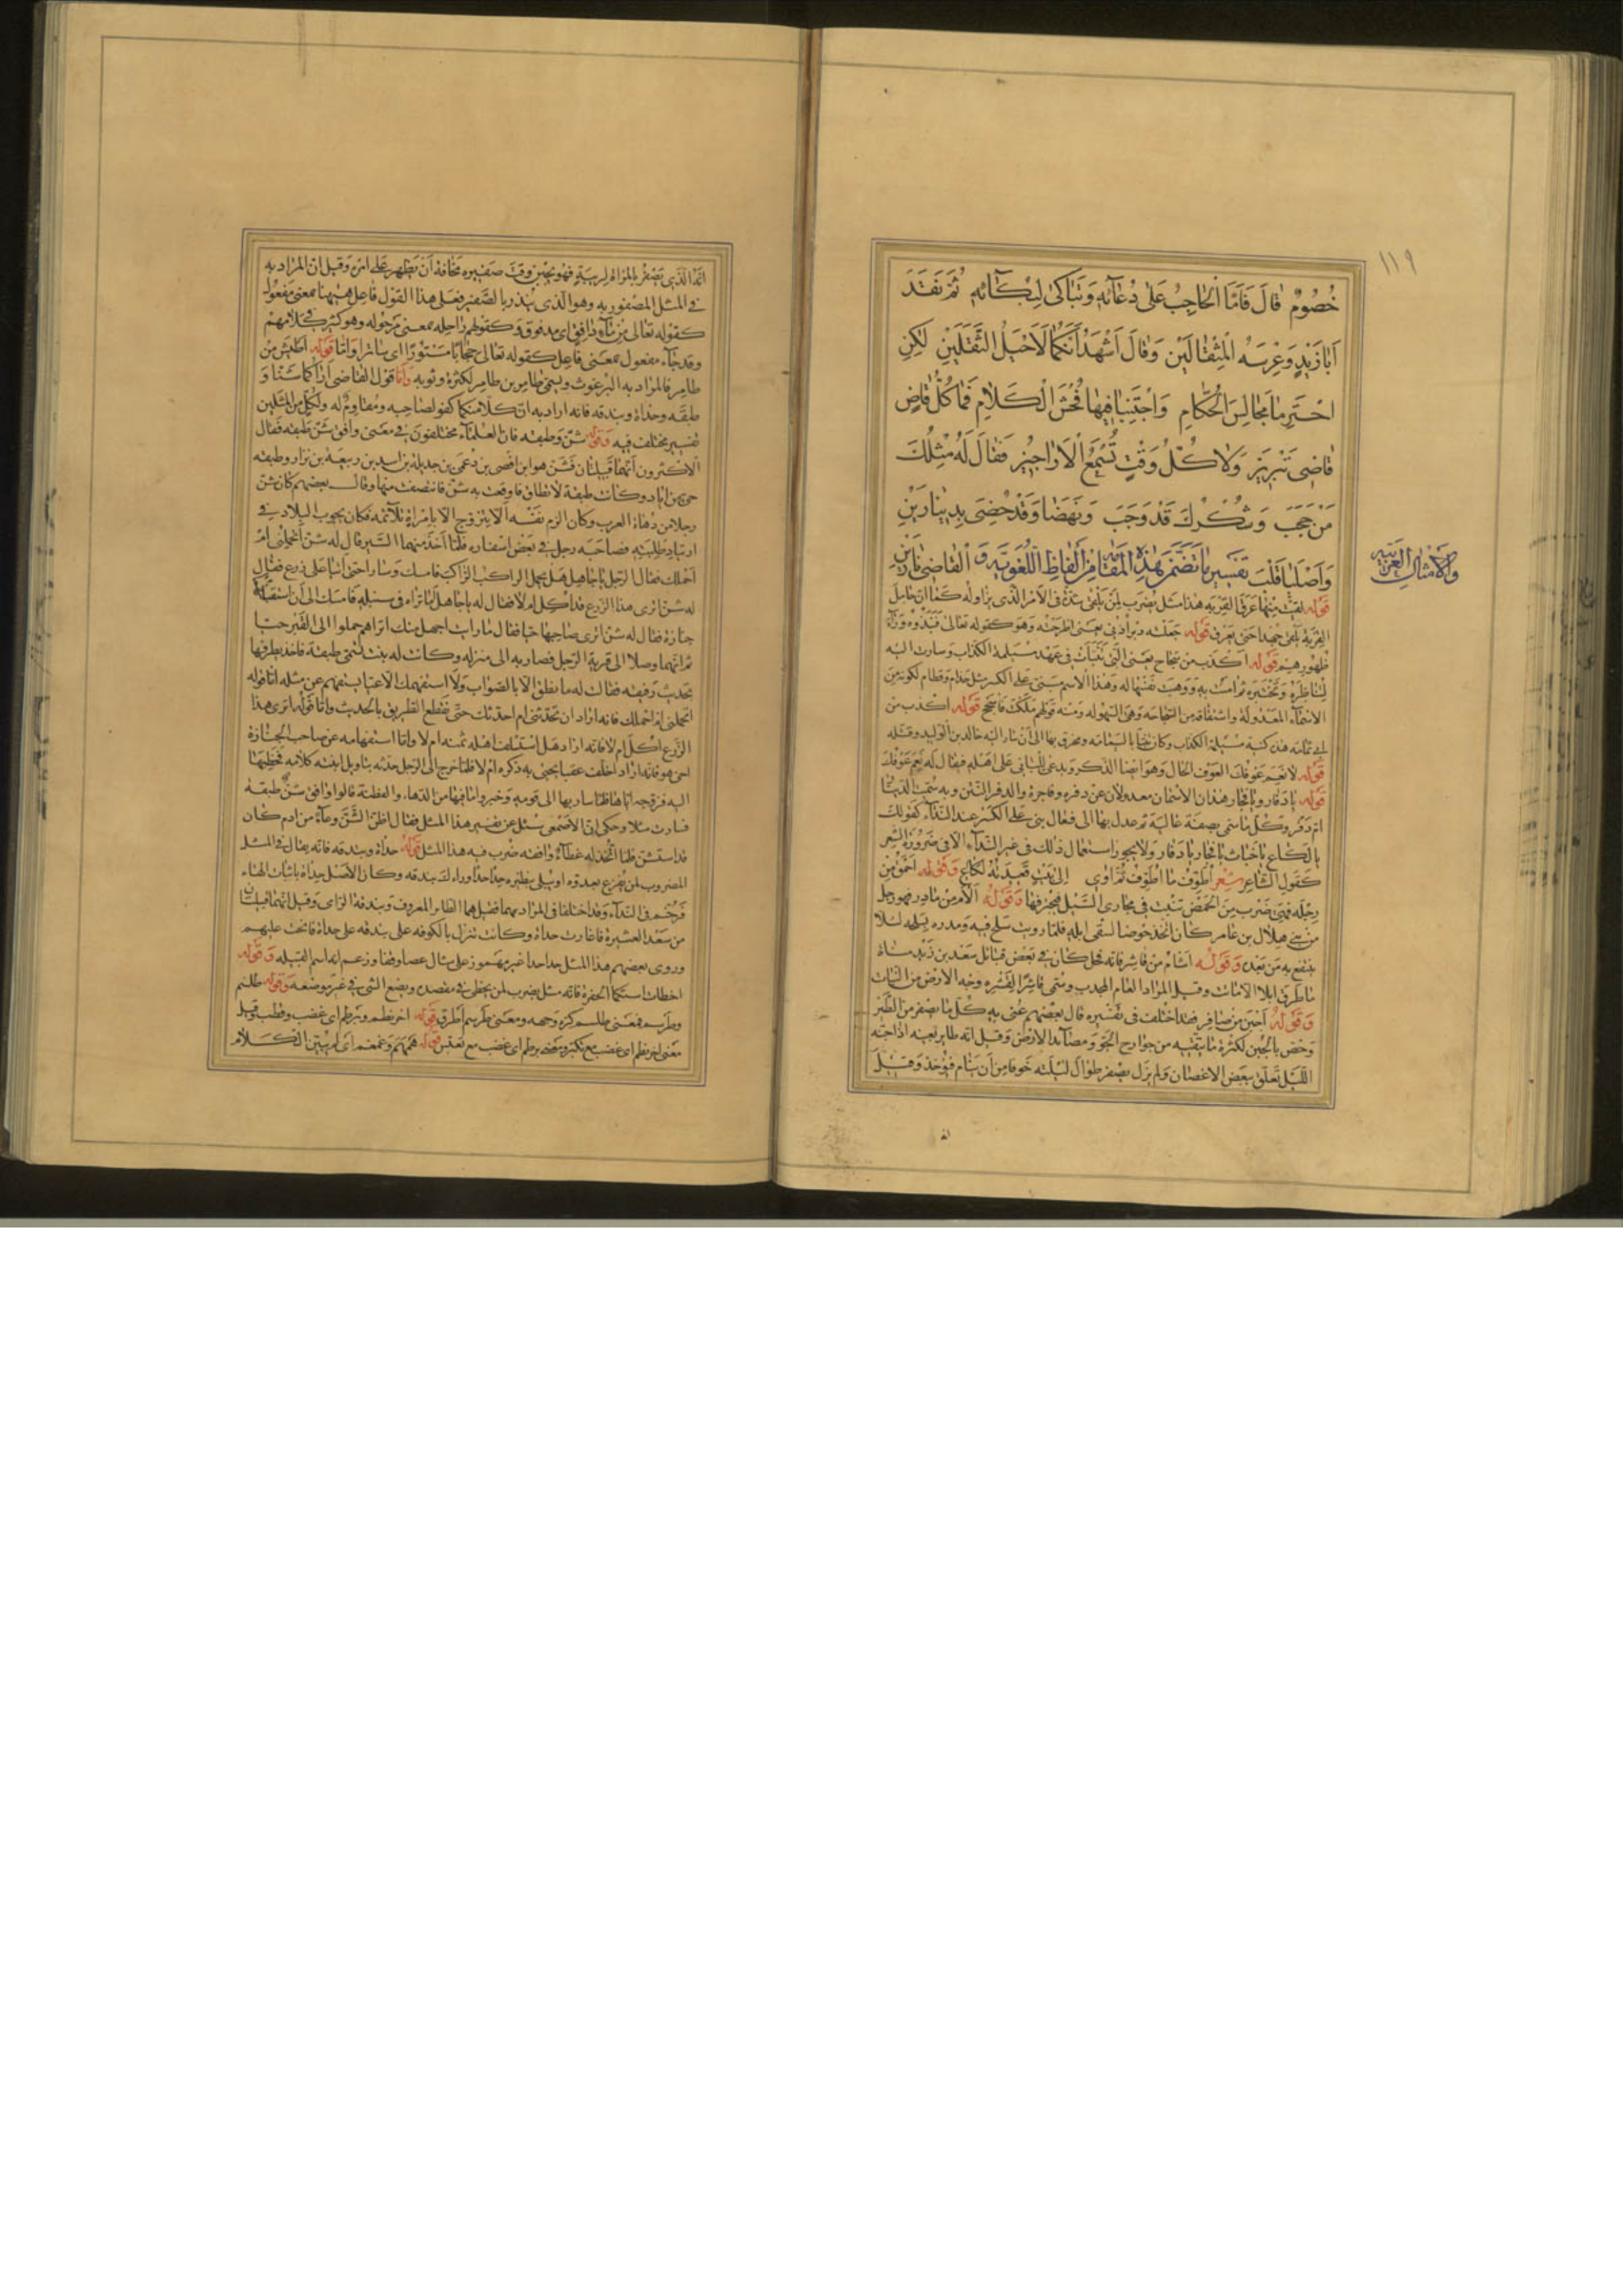 ١١٩
خُصُومٌ قَالَ فَأَمَّا الْحَاجِبُ عَلَى دُعَائِهِ وَتَبَاكَى لِبُكَائِهِ ثُمَّ نَقَدَ
أَبَا زَيْدٍ وَعِرْسَهُ الْمِثْقَالَيْنِ وَقَالَ أَشْهَدُ أَنَّكُمَا لَأَحْيَلُ الثَّقَلَيْنِ لَكِنِ
احْتَرِمَا مَجَالِسَ الْحُكَّامِ وَاجْتَنِبَا فِيهَا فُحْشَ الْكَلَامِ فَمَا كُلُّ قَاضٍ
قَاضِي تَبْرِيزَ وَلَا كُلُّ وَقْتٍ تُسْمَعُ الْأَرَاجِيزُ فَقَالَ لَهُ مِثْلُكَ
مَنْ حَجَبَ وَشُكْرُكَ قَدْ وَجَبَ وَنَهَضَا وَقَدْ حَظِيَا بِدِينَارَيْنِ
وَأَصْلَيَا قَلْبَ الْقَاضِي نَارَيْنِ
تفسير ما تضمن هذه المقامة من ألفاظ اللغوية و
والأمثال العربية
قوله لقيت منها عرق القربة هذا مثل يضرب لمن يلقى شدة في الأمر الذي يزاوله كما أن حامل
القربة يلقى جهدا حتى يعرق قوله جعلته دبر أذني بمعنى اطرحته وهو كقوله تعالى فنبذوه وراء
ظهورهم قوله أكذب من سجاح يعني التي تنبأت في عهد مسيلمة الكذاب وسارت اليه
لتناظره وتختبره ثم آمنت به ووهبت نفسها له وهذا الاسم مبني على الكسر مثل حذام وقطام لكونه من
الاسماء المعدولة واشتقاقه من السجاحة وهي السهولة ومنه قولهم ملكت فاسجح قوله أكذب من
أبي ثمامة هذه كنية مسيلمة الكذاب وكان تنبأ باليمامة ومخرق بها الى أن سار اليه خالد بن الوليد وقتله
قوله لا نعم عوفك العوف الحال وهو أيضا الذكر ويدعى للباني على أهله فيقال له نعم عوفك
قوله يا دفار ويا فجار هذان الاسمان معدولان عن دفره وفاجرة والدفر النتن وبه سميت الدنيا
أم دفر وكل ما سمي بصفة غالبة ثم عدل بها الى فعال بني على الكسر عند النداء كقولك
يا لكاع يا خباث يا فجار يا دفار ولا يجوز استعمال ذلك في غير النداء إلا في ضرورة الشعر
كقول الشاعر شعر أطوف ما أطوف ثم آوي إلى بيت قعيدته لكاع وقوله أحمق من
رجله فهي ضرب من الحمض تنبت في مجاري السيل فيجرفها وقوله ألأم من مادر فهو رجل
من بني هلال بن عامر كان اتخذ حوضا لسقي ابله فلما رويت سلح فيه ومدره بسلحه لئلا
ينتفع به من بعده وقوله أشأم من قاشر فانه فحل كان في بعض قبائل سعد بن زيد مناة
ما طرق ابلا الا ماتت وقيل المراد العام المجدب وسمي قاشرا لقشره وجه الارض من النبات
وقوله أجبن من صافر فقد اختلف في تفسيره قال بعضهم عنى به كل ما يصفر من الطير
وخص بالجبن لكثرة ما يتقيه من جوارح الجو ومصائد الارض وقيل انه طاير بعينه اذا جنه
الليل تعلق ببعض الاغصان ولم يزل يصفر طوال ليلته خوفا من أن ينام فيؤخذ وقيل
انه الذي يصفر بالمرأة لريبة فهو يجبن وقت صفيره مخافة أن يظهر على أمره وقيل ان المراد به
في المثل المصفور به وهو الذي ينذر بالصفير فعلى هذا القول فاعل ههنا بمعنى مفعول
كقوله تعالى من ماء دافق أي مدفوق وكقولهم راحلة بمعنى مرحولة وهو كثير في كلامهم
وقد جاء مفعول بمعنى فاعل كقوله تعالى حجابا مستورا اي ساترا واما قوله أطيش من
طامر فالمراد به البرغوث ويسمى طامر بن طامر لكثرة وثوبه وأما قول القاضي أراكما شنا و
طبقة وحدأة وبندقة فانه أراد به ان كلا منكما كفو لصاحبه ومقاوم له ولكل من المثلين
تفسير مختلف فيه وقوله شن وطبقة فان العلماء مختلفون في معنى وافق شن طبقه فقال
الاكثرون انهما قبيلتان فشن هو ابن افصى بن دعمي بن جديلة بن اسد بن ربيعة بن نزار وطبقه
حي من اياد وكانت طبقة لا تطاق فاوقعت به شن فانتصفت منها وقال بعضهم كان شن
رجلا من دهاة العرب وكان الزم نفسه الا يتزوج الا بامرأة تلائمه فكان يجوب البلاد في
ارتياد طلبته فصاحبه رجل في بعض اسفاره فلما اخذ منهما السير قال له شن أتحملني ام
أحملك فقال الرجل يا جاهل هل يحمل الراكب الراكب فامسك وسارا حتى أتيا على زرع فقال
له شن اترى هذا الزرع قد اكل ام لا فقال له يا جاهل أما تراه في سنبله فامسك الى أن استقبلتهما
جنازة فقال له شن اترى صاحبها حيا فقال ما رايت اجهل منك اتراهم حملوا الى القبر حيا
ثم انهما وصلا الى قرية الرجل فصار به الى منزله وكانت له بنت تسمى طبقة فاخذ يطرفها
بحديث رفيقه فقالت له ما نطق الا بالصواب ولا استفهمك الا عما يستفهم عن مثله اما قوله
اتحملني ام احملك فانه اراد ان تحدثني ام احدثك حتى نقطع الطريق بالحديث واما قوله اترى هذا
الزرع اكل ام لا فانه اراد هل استسلف اهله ثمنه ام لا واما استفهامه عن صاحب الجنازة
احي هو فانه اراد اخلف عقبا يحيى به ذكره ام لا فلما خرج الى الرجل حدثه بتاويل ابنته كلامه فخطبها
اليه فزوجه اياها فلما سار بها الى قومه وخبروا ما فيها من الدهاء والفطنة قالوا وافق شن طبقة
فسارت مثلا وحكي ان الاصمعي سئل عن تفسير هذا المثل فقال اظن الشن وعاء من ادم كان
قد استشن فلما اتخذ له غطاء وافقه ضرب فيه هذا المثل قوله حدأة وبندقه فانه يقال في المثل
المضروب لمن يفزع بعدوه او يبلى بنظيره حدأ حدأ وراءك بندقه وكان الاصل حدأة باثبات الهاء
فرخم في النداء وقد اختلفا في المراد بهما فقيل هما الطاير المعروف وبندقة الرامي وقيل انهما قبيلتان
من سعد العشيرة فاغارت حدأة وكانت تنزل بالكوفه على بندقه على حدأة فانحت عليهم
وروى بعضهم هذا المثل حدا حدا غير مهموز على مثال عصا وقفا وزعم انه اسم القبيله وقوله
اخطات استكما الحفرة فانه مثل يضرب لمن يخطئ في مقصده ويضع الشي في غير موضعه وقوله طلسم
وطرسم فمعنى طلسم كره وجهه ومعنى طرسم أطرق قوله اخرنطم وبرطم اي غضب وقطب وقيل
معنى اخرنطم اي غضب مع تكبر ومعنى برطم اي غضب مع تعبس قوله همهم وغمغم اي لم يبين الكلام